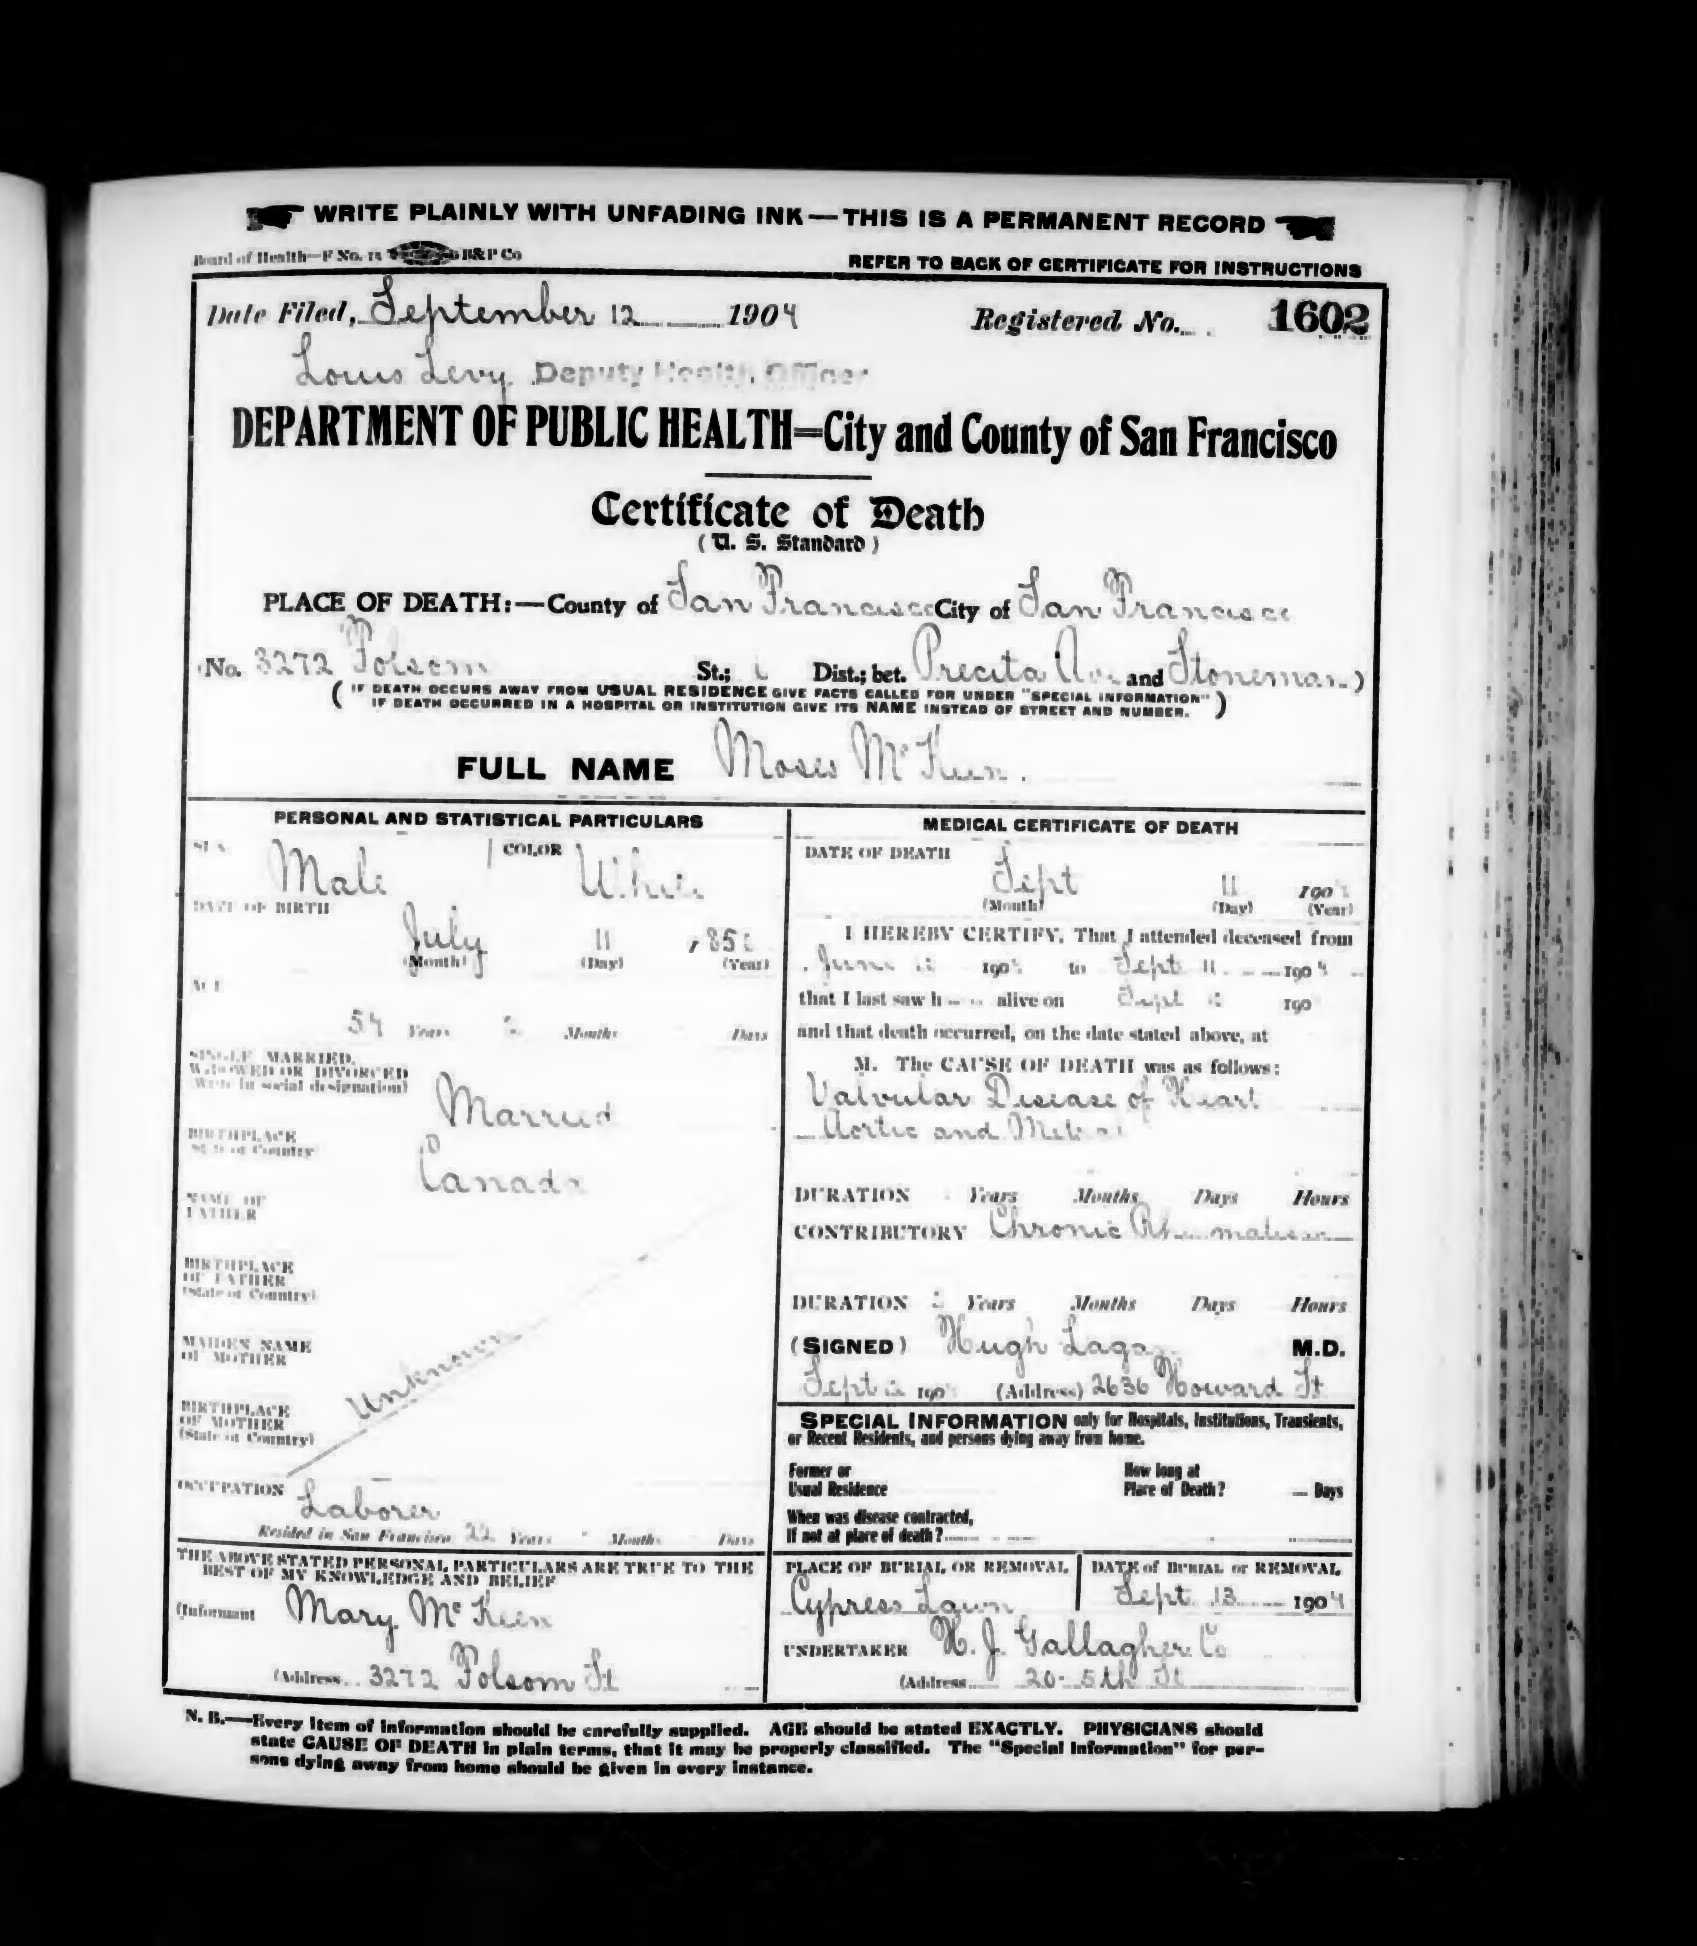 WRITE PLAINLY WITH UNFADING INK — THIS IS A PERMANENT RECORD
Board of Health—F No. B&P Co
REFER TO BACK OF CERTIFICATE FOR INSTRUCTIONS
Date Filed, September 12 1904 Registered No. 1602
Louis Levy, Deputy Health Officer
DEPARTMENT OF PUBLIC HEALTH=City and County of San Francisco
Certificate of Death
( U. S. Standard )
PLACE OF DEATH:—County of San Francisco City of San Francisco
No. 3272 Folsom St.; Dist.; bet. Precita Av. and Stoneman )
( IF DEATH OCCURS AWAY FROM USUAL RESIDENCE GIVE FACTS CALLED FOR UNDER "SPECIAL INFORMATION"
IF DEATH OCCURRED IN A HOSPITAL OR INSTITUTION GIVE ITS NAME INSTEAD OF STREET AND NUMBER. )
FULL NAME Moses McKeen.
PERSONAL AND STATISTICAL PARTICULARS
SEX Male COLOR White
DATE OF BIRTH
July 11
(Month) (Day) (Year)
AGE
54 Years 2 Months Days
SINGLE, MARRIED,
WIDOWED OR DIVORCED
(Write in social designation)
Married
BIRTHPLACE
(State or Country)
Canada
NAME OF
FATHER
BIRTHPLACE
OF FATHER
(State or Country)
MAIDEN NAME
OF MOTHER
Unknown
BIRTHPLACE
OF MOTHER
(State or Country)
OCCUPATION Laborer
Resided in San Francisco 22 Years Months Days
THE ABOVE STATED PERSONAL PARTICULARS ARE TRUE TO THE
BEST OF MY KNOWLEDGE AND BELIEF
(Informant Mary McKeen
(Address 3272 Folsom St
MEDICAL CERTIFICATE OF DEATH
DATE OF DEATH
Sept 11 190
(Month) (Day) (Year)
I HEREBY CERTIFY, That I attended deceased from
June 190 to Sept 11 1904
that I last saw h alive on Sept 190
and that death occurred, on the date stated above, at
M. The CAUSE OF DEATH was as follows:
Valvular Disease of Heart
Aortic and Mitral
DURATION Years Months Days Hours
CONTRIBUTORY Chronic Rheumatism
DURATION Years Months Days Hours
(SIGNED) Hugh M.D.
Sept 190 (Address) 2636 Howard St
SPECIAL INFORMATION only for Hospitals, Institutions, Transients,
or Recent Residents, and persons dying away from home.
Former or
Usual Residence
How long at
Place of Death? Days
When was disease contracted,
If not at place of death?
PLACE OF BURIAL OR REMOVAL
Cypress Lawn
DATE of BURIAL or REMOVAL
Sept 13 1904
UNDERTAKER H. J. Gallagher Co
(Address 20-5th St
N. B.—Every item of information should be carefully supplied. AGE should be stated EXACTLY. PHYSICIANS should
state CAUSE OF DEATH in plain terms, that it may be properly classified. The "Special Information" for per-
sons dying away from home should be given in every instance.